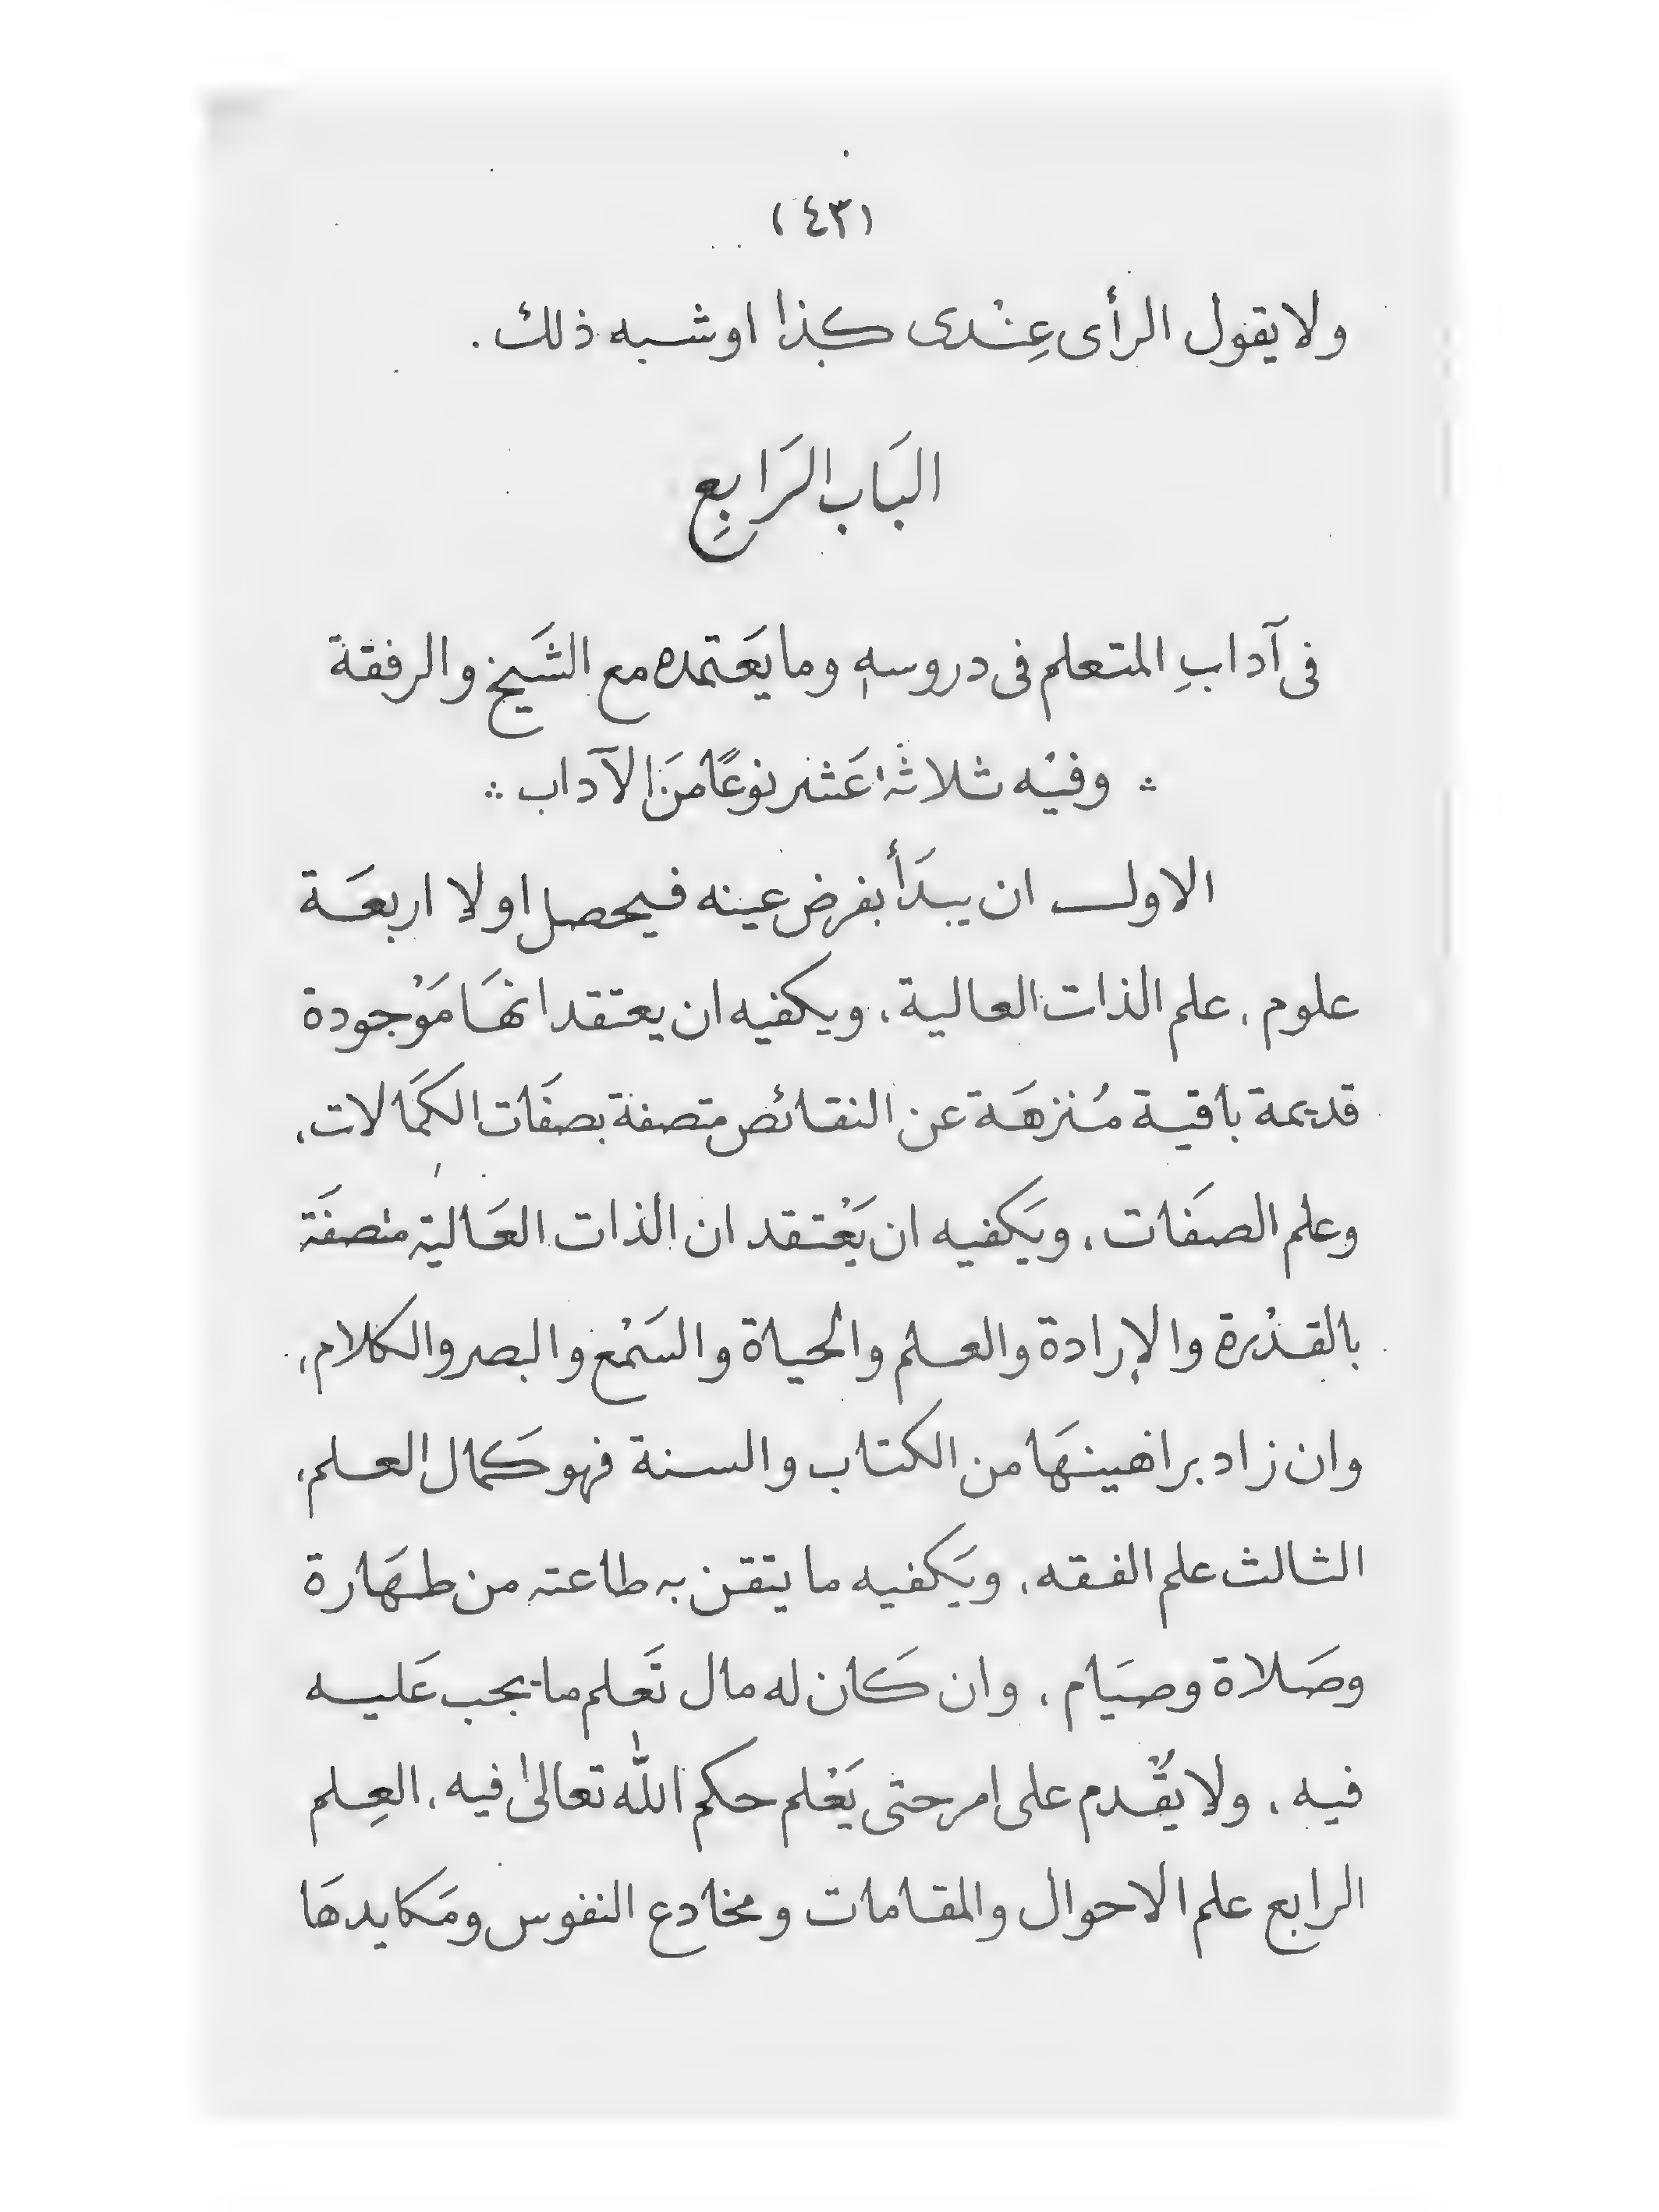 (٤٣)
ولا يقول الرأى عِنْدى كذا او شبه ذلك .
البَاب الرَابِع
فى آدابِ المتعلم فى دروسهٖ وما يَعَتمده مع الشَيخ والرفقة
∴ وفيْه ثلاثة عَشر نوعًا مَن الآداب ∴
الاول ان يبدَأ بفرض عينه فيحصل اولا اربعَة
علوم ، علم الذات العالية ، ويكفيه ان يعتقد انهَا مَوْجودة
قديمة باقية مُنزهَة عن النقائص متصفة بصفَات الكمَالات ،
وعلم الصفَات ، ويَكفيه ان يَعْتقد ان الذات العَالية متصفَة
بالقدْرة والإرادة والعلم والحياة والسَمْع والبصر والكلام ،
وان زاد براهينهَا من الكتاب والسنة فهو كَمال العلم ،
الثالث علم الفقه ، ويَكفيه ما يتقن به طاعته من طهَارة
وصَلاة وصيَام ، وان كَان له مال تَعلم ما يجب عَليه
فيه ، ولا يقْدم على امر حتى يَعْلم حكم الله تعالىٰ فيه ، العِلم
الرابع علم الاحوال والمقامات ومخادع النفوس ومَكايدهَا